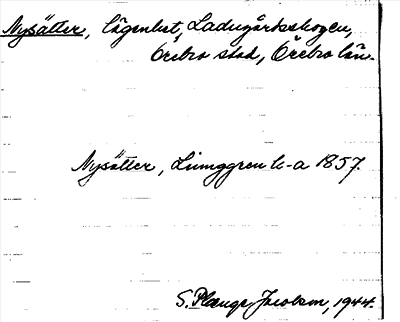 Nysätter, lägenhet, Ladugårdsskogen,
Örebro stad, Örebro län.
Nysätter, Ljunggren k-a 1857.
S. Plange Jacobson, 1944.